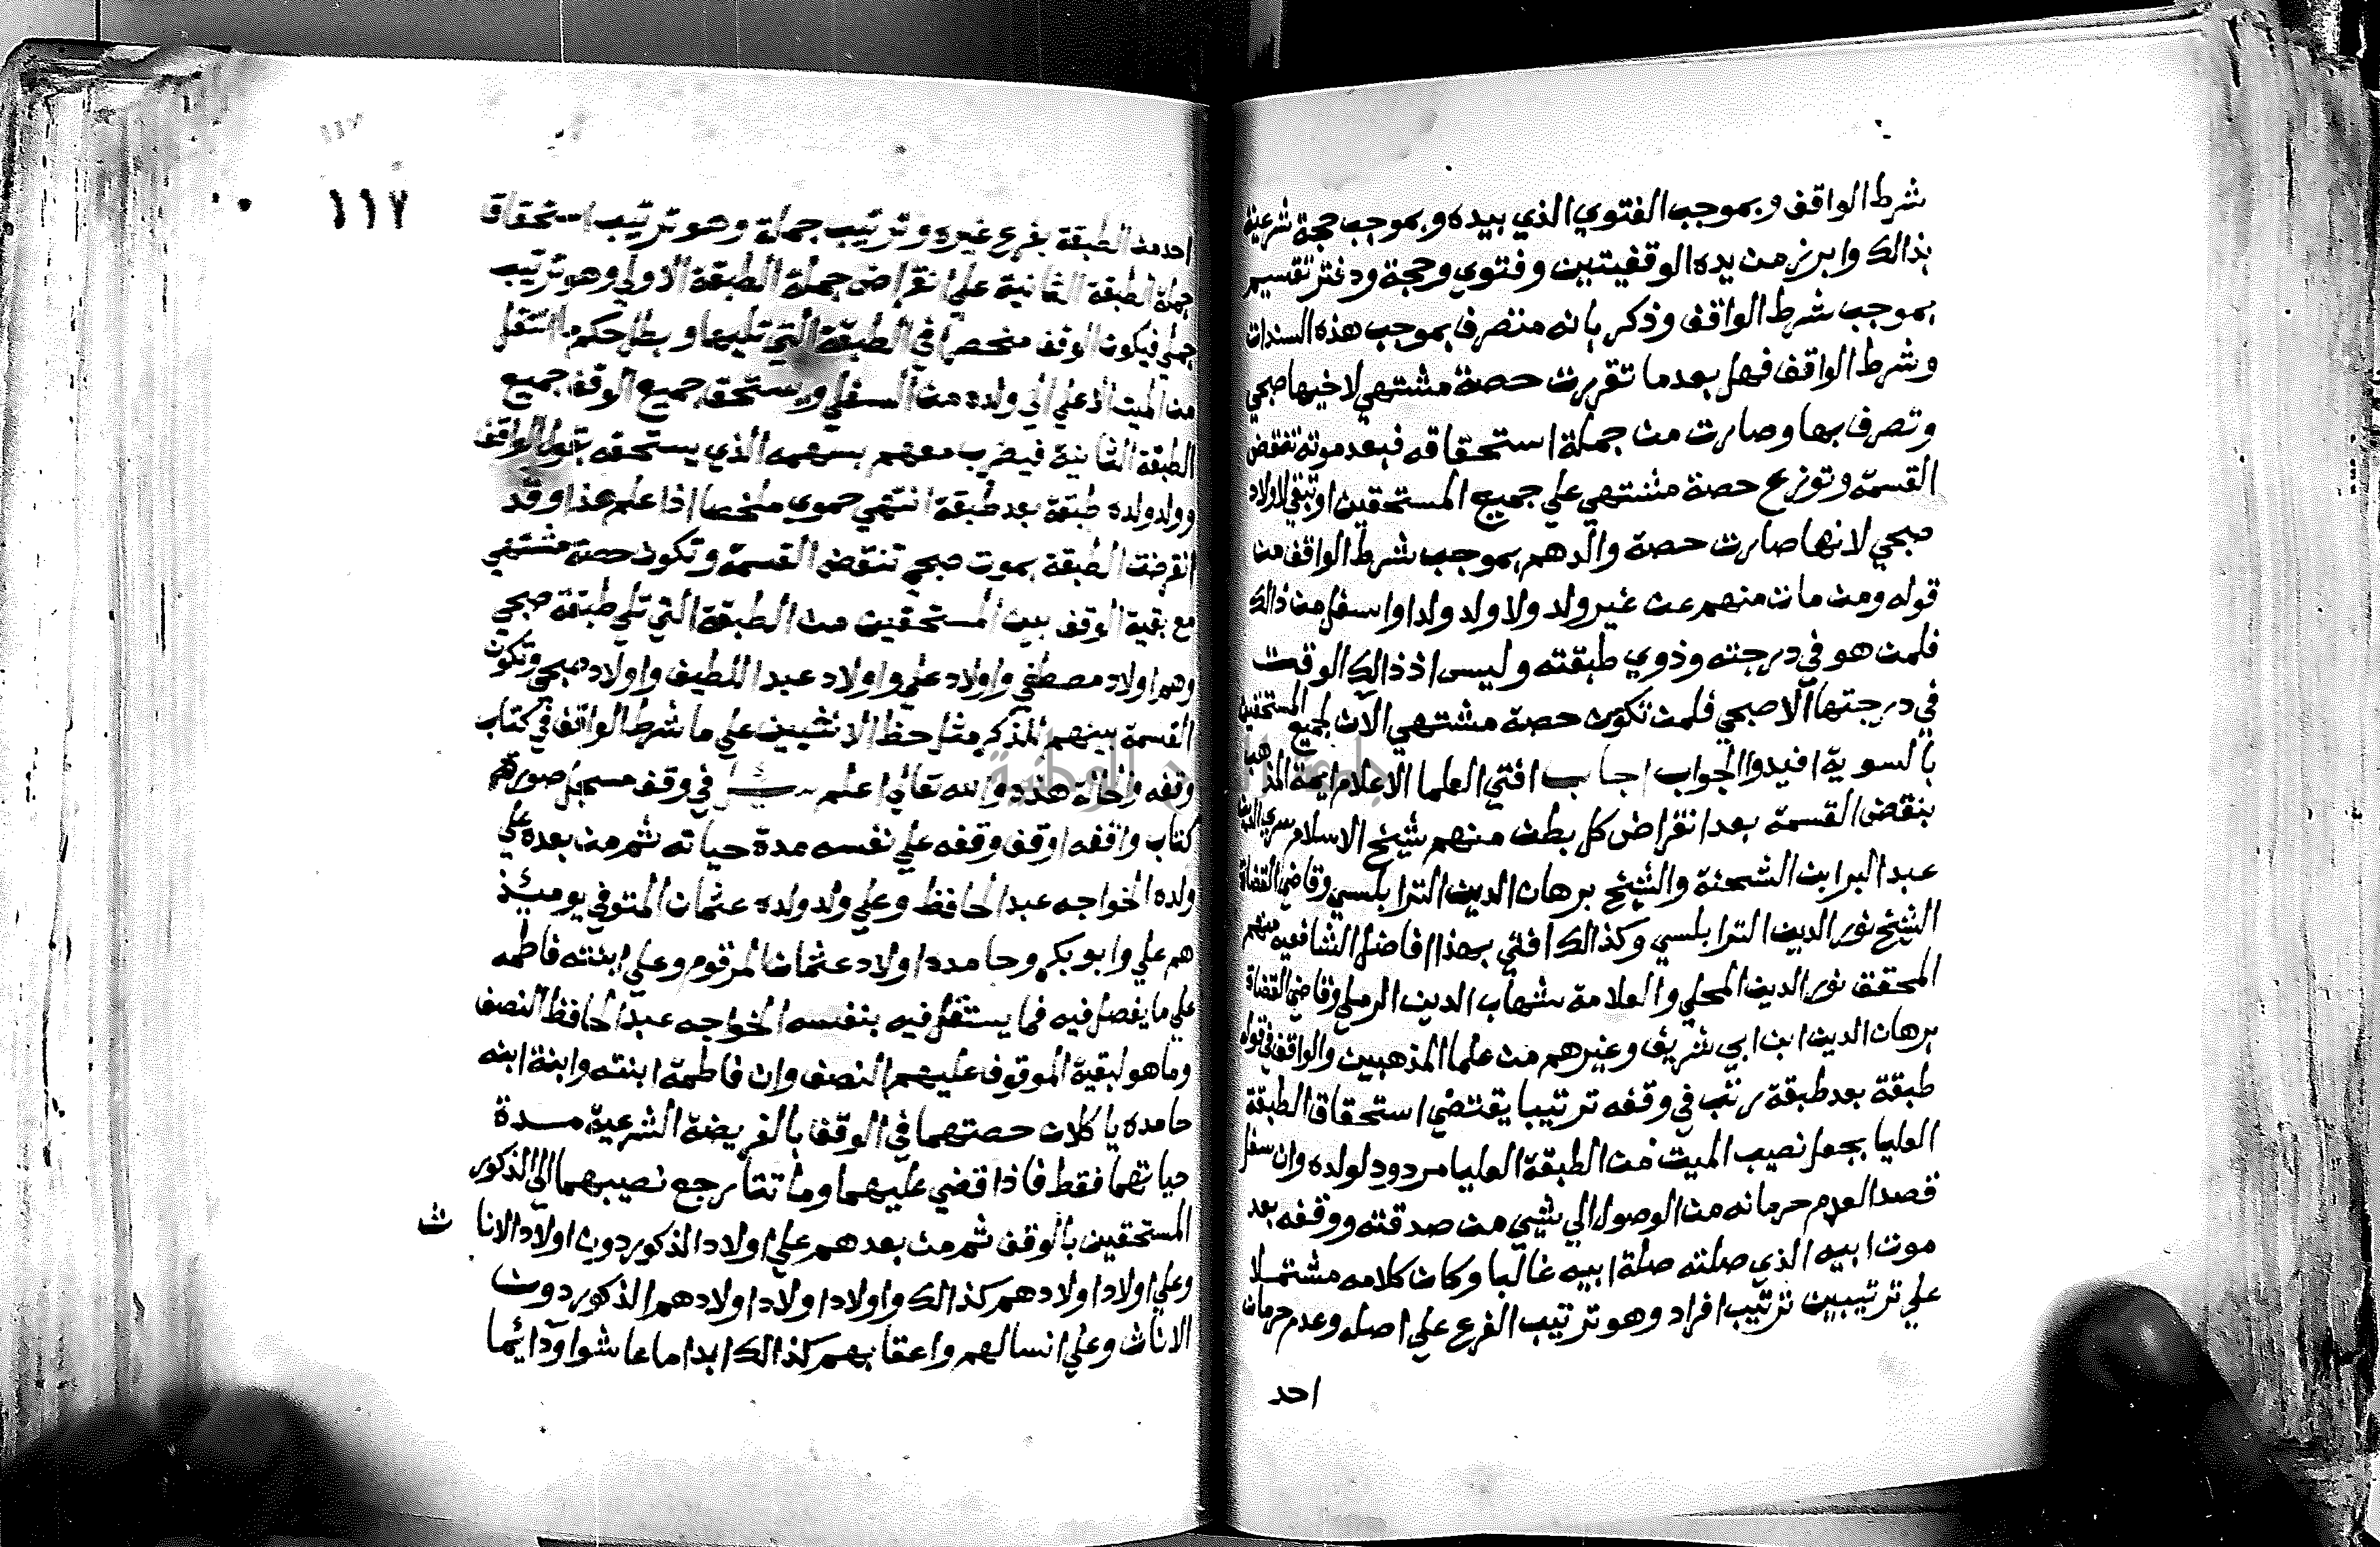 شرط الواقف وبموجب الفتوي الذي بيده وبموجب حجة شرعية
بذالك وابرز من يده الوقفيتين وفتوي وحجة ودفتر تقسيم
بموجب شرط الواقف وذكر بانه متصرف بموجب هذه السندات
وشرط الواقف فهل بعدما تقررت حصة مشتهي لاخيها صبحي
وتصرف بها وصارت من جملة استحقاقه فبعد موته تنقض
القسمة وتوزع حصة مشتهي علي جميع المستحقين او تبقي لاولاد
صبحي لانها صارت حصة والدهم بموجب شرط الواقف من
قوله ومن مات منهم عن غير ولد ولا ولد ولدا واسفل من ذالك
فلمن هو في درجته وذوي طبقته وليس اذ ذالك الوقت
في درجتها الا صبحي فلمن تكون حصة مشتهي الان لجميع المستحقين
بالسوية افيدوا الجواب اجاب افتي العلما الاعلام ايمة المذاهب
بنقض القسمة بعد انقراض كل بطن منهم شيخ الاسلام سري الدين
عبد البر ابن الشحنة والشيخ برهان الدين الترابلسي وقاضي القضاة
الشيخ نور الدين الترابلسي وكذالك افتي بهذا افاضل الشافعيه منهم
المحقق نور الدين المحلي والعلامة شهاب الدين الرملي وقاضي القضاة
برهان الدين ابن ابي شريف وغيرهم من علما المذهبين والواقف في قوله
طبقة بعد طبقة رتب في وقفه ترتيبا يقتضي استحقاق الطبقة
العليا بجعل نصيب الميت من الطبقة العليا مردود لولده وان سفل
قصد العدم حرمانه من الوصول الي شيي من صدقته ووقفه بعد
موت ابيه الذي صلته صلة ابيه غالبا وكان كلامه مشتملا
علي ترتيبين ترتيب افراد وهو ترتيب الفرع علي اصله وعدم حرمان
احد
١١٧
احد من الطبقة بفرع غيره وترتيب جملة وهو ترتيب استحقاق
جملة الطبقة الثانية علي انقراض جملة الطبقة الاولي وهو ترتيب
جملي فيكون الوقف منحصرا في الطبقة التي تليها وبطل حكم التنقل
من الميت الاعلي الي ولده من السفلي ويستحق جميع الوقف جميع
الطبقة الثانية فيضرب معهم بسهمه الذي يستحقه بقول الواقف
وولد ولده طبقة بعد طبقة انتهي حموي ملخصا اذا علم هذا وقد
انقرضت الطبقة بموت صبحي تنتقض القسمة وتكون حصة مشتهي
مع بقية الوقف بين المستحقين من الطبقة التي تلي طبقة صبحي
وهم اولاد مصطفي واولاد علي واولاد عبد اللطيف واولاد صبحي وتكون
القسمة بينهم للذكر مثل حظ الانثيين علي ما شرط الواقف في كتاب
وقفه والحالة هذه والله تعالي اعلم سئل في وقف مسجل صورته
كتاب واقفه اوقف وقفه علي نفسه مدة حياته ثم من بعده علي
ولده الخواجه عبد الحافظ وعلي ولد ولده عثمان المتوفي يوميئذ
هم علي وابو بكر وحامده اولاد عثمان المرقوم وعلي ابنته فاطمه
علي ما يفصل فيه فما يستقل فيه بنفسه الخواجه عبد الحافظ النصف
وما هو لبقية الموقوف عليهم النصف وان فاطمة ابنته وابنة ابنه
حامده ياكلان حصتهما في الوقف بالفريضة الشرعية مدة
حياتهما فقط فاذا قضي عليهما وماتتا رجع نصيبهما الي الذكور
المستحقين بالوقف ثم من بعدهم علي اولاد الذكور دون اولاد الاناث
وعلي اولاد اولادهم كذالك واولاد اولاد اولادهم الذكور دون
الاناث وعلي انسالهم واعقابهم كذالك ابدا ما عاشوا ودايما